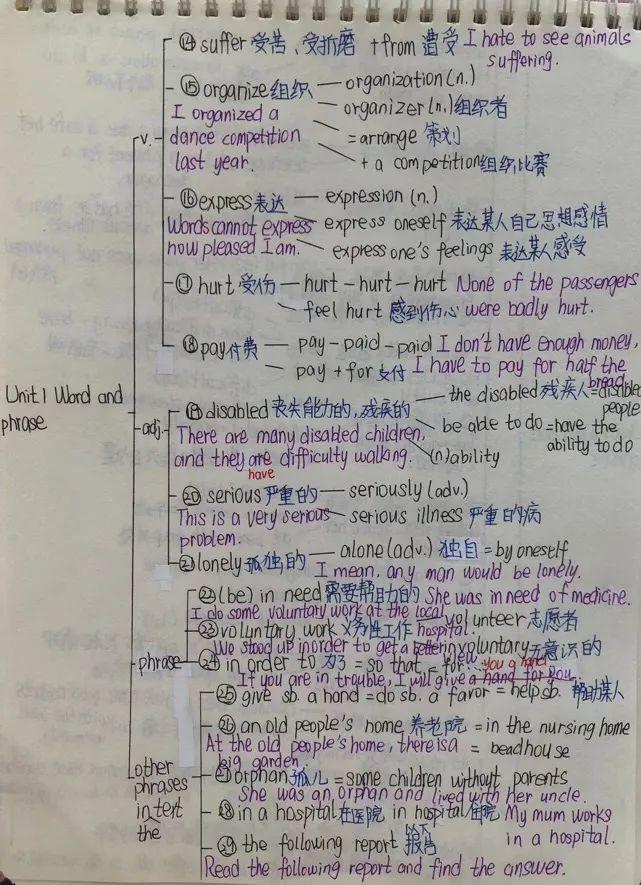 Unit.1 Word and phrase
v.
⑭ suffer 受苦、受折磨 +from 遭受 I hate to see animals suffering.
⑮ organize 组织 — organization (n.)
organizer (n.) 组织者
I organized a dance competition last year.
= arrange 策划
+ a competition 组织比赛
⑯ express 表达 — expression (n.)
Words cannot express how pleased I am.
express oneself 表达某人自己思想感情
express one's feelings 表达某人感受
⑰ hurt 受伤 — hurt - hurt - hurt None of the passengers were badly hurt.
feel hurt 感到伤心
⑱ pay 付费 — pay - paid - paid I don't have enough money,
pay + for 支付 I have to pay for half the bread
adj.
⑲ disabled 丧失能力的,残疾的 — the disabled 残疾人 = disabled people
There are many disabled children, and they are difficulty walking.
have
be able to do = have the ability to do
(n) ability
⑳ serious 严重的 — seriously (adv.)
This is a very serious problem.
serious illness 严重的病
㉑ lonely 孤独的 — alone (adv.) 独自 = by oneself
I mean, any man would be lonely.
phrase
㉒ (be) in need 需要帮助的 She was in need of medicine.
I do some voluntary work at the local hospital.
㉓ voluntary work 义务性工作
volunteer 志愿者
involuntary 无意识的
We stood up in order to get a better view
㉔ in order to 为了 = so that = for...
you a hand
If you are in trouble, I will give a hand for you.
other phrases in text
the
㉕ give sb. a hand = do sb. a favor = help sb. 帮助某人
㉖ an old people's home 养老院 = in the nursing home
= beadhouse
At the old people's home, there is a big garden.
㉗ orphan 孤儿 = some children without parents
She was an orphan and lived with her uncle.
㉘ in a hospital 在医院 in hospital 住院 My mum works in a hospital.
㉙ the following report 以下报告
Read the following report and find the answer.